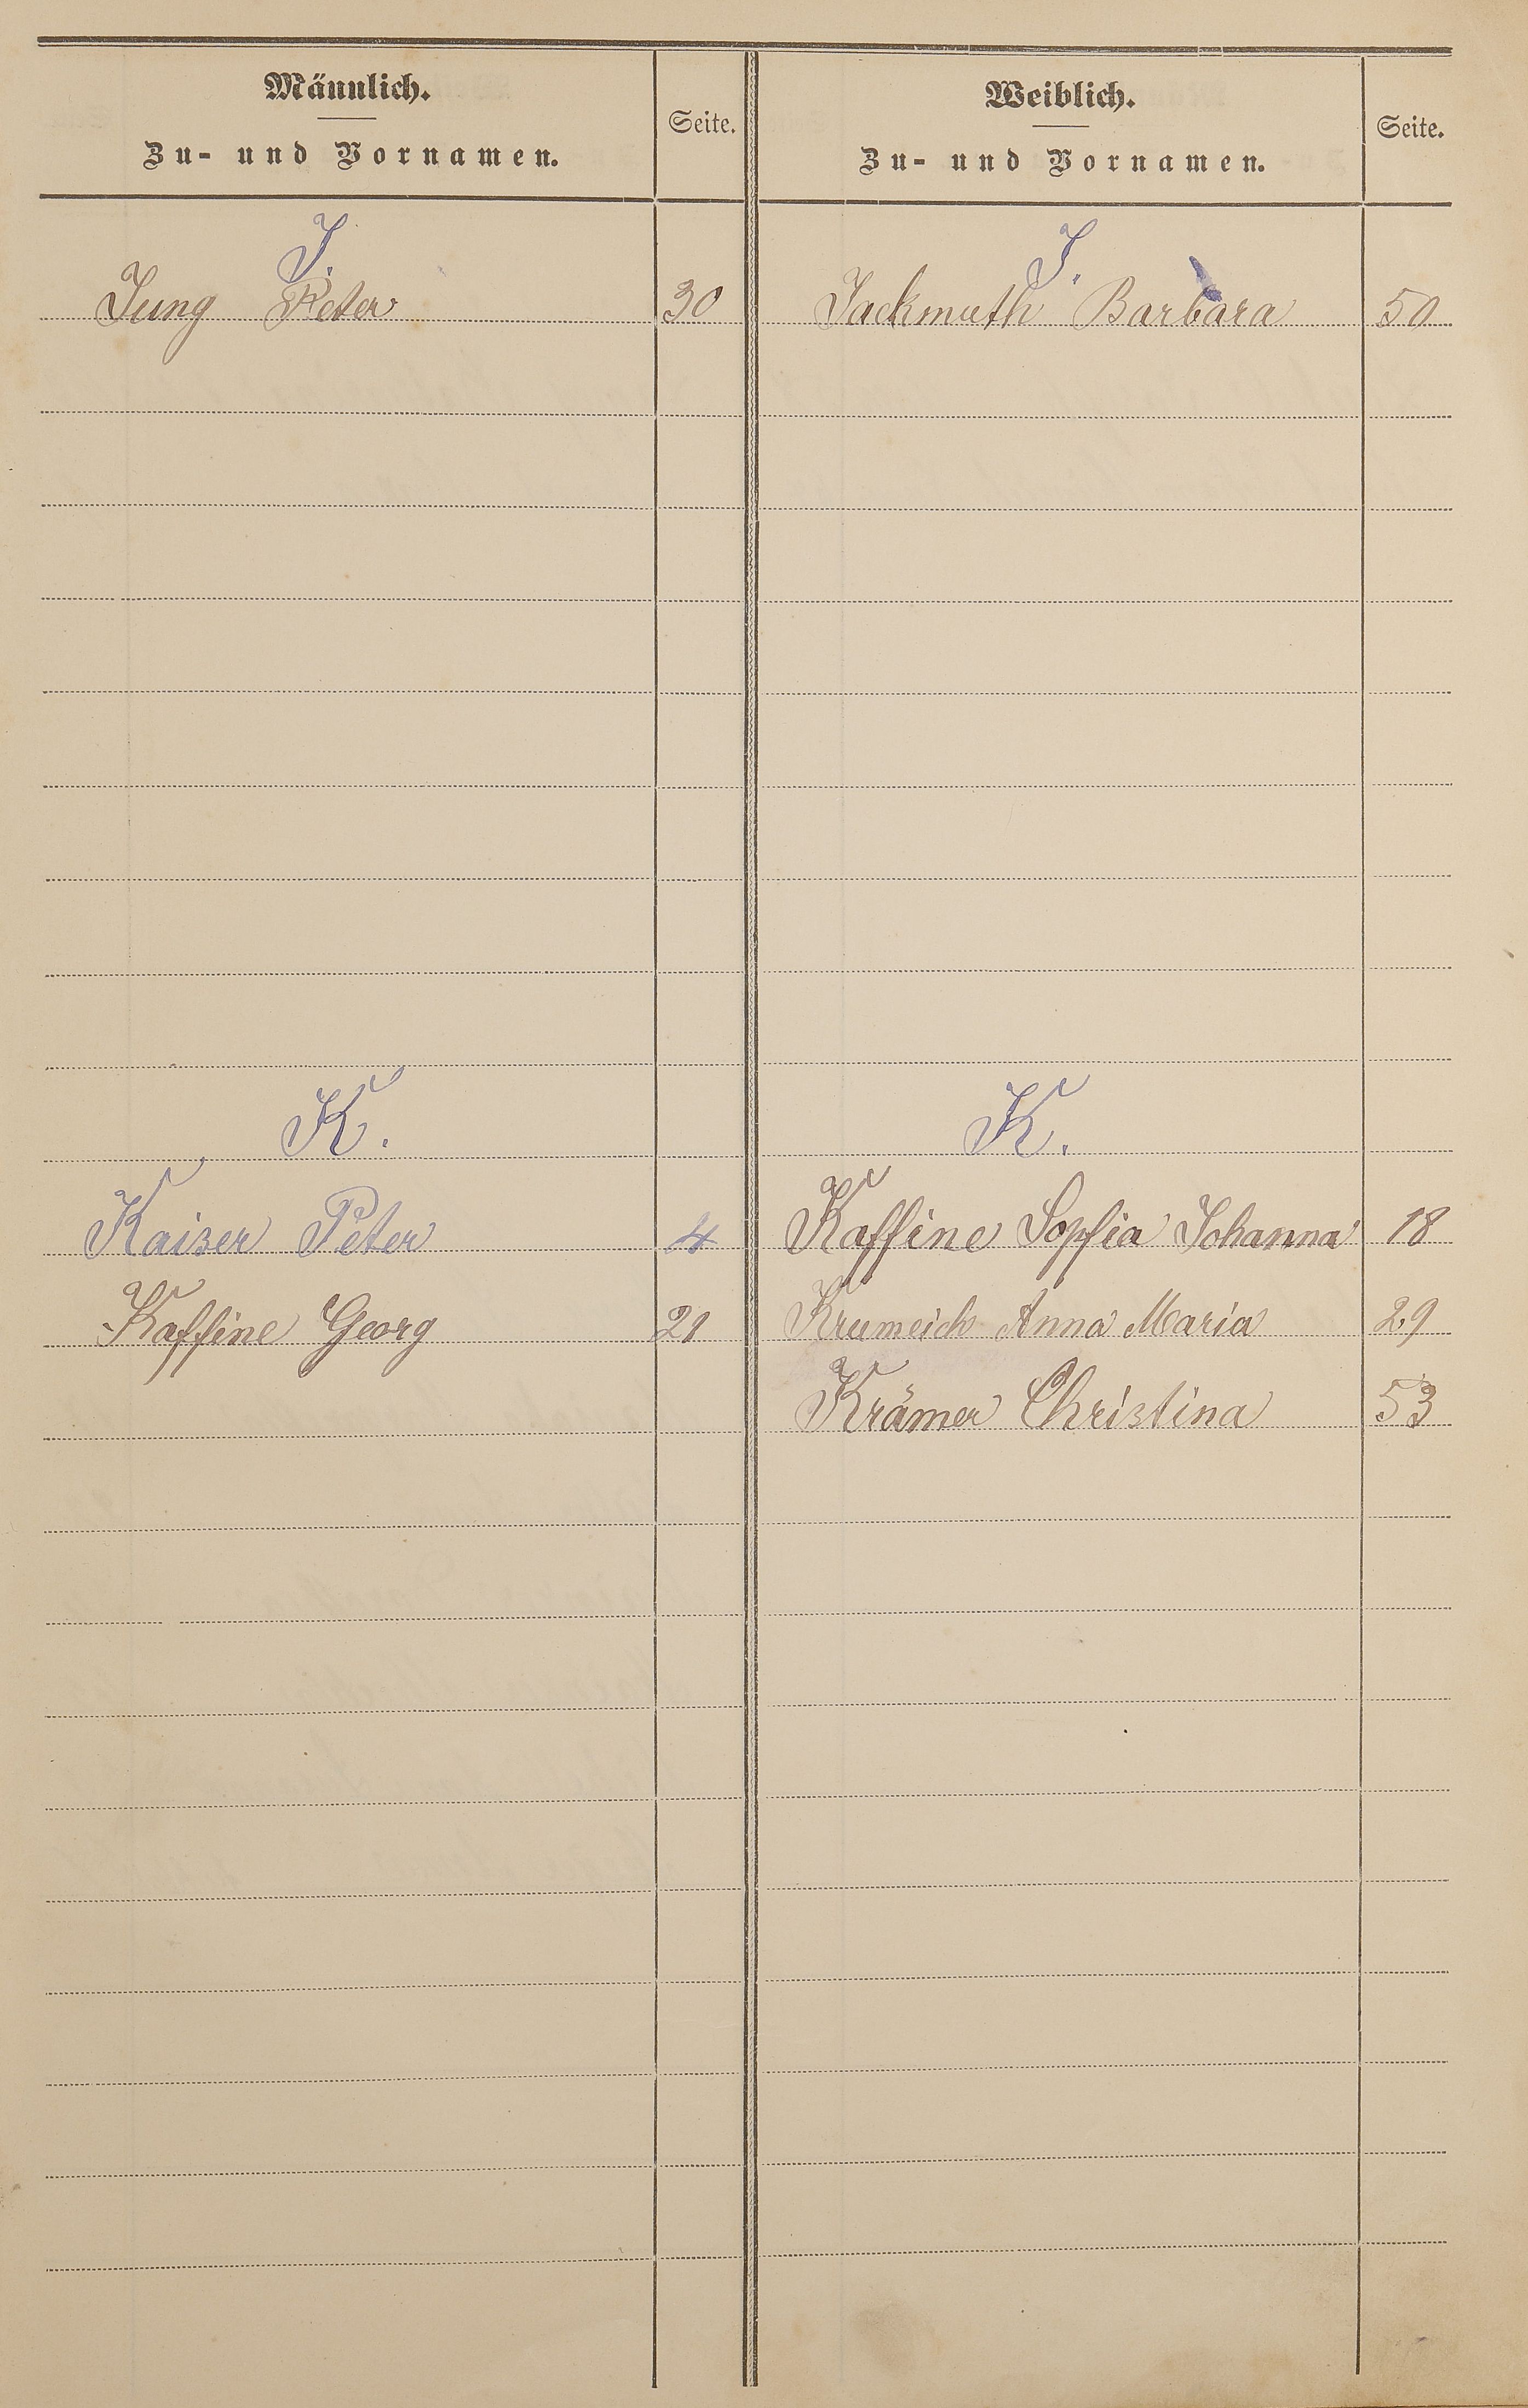 Männlich.
Zu- und Vornamen.
Seite.
Weiblich.
Zu- und Vornamen.
Seite.
J.
J.
Jung Peter 30
Jackmuth Barbara 50
K.
K.
Kaiser Peter 4
Kaffine Sopfia Johanna 18
Kaffine Georg 21
Krumeich Anna Maria 29
Krämer Christina 53